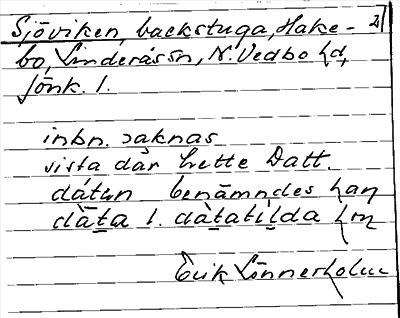 Sjöviken, backstuga, Hake- 21
bo, Linderås sn, N. Vedbo hd,
Jönk. l.
inbn. saknas
sista där hette Datt.
dátun benämndes han
däta l. dàtatilda hon
Erik Lönnerholm